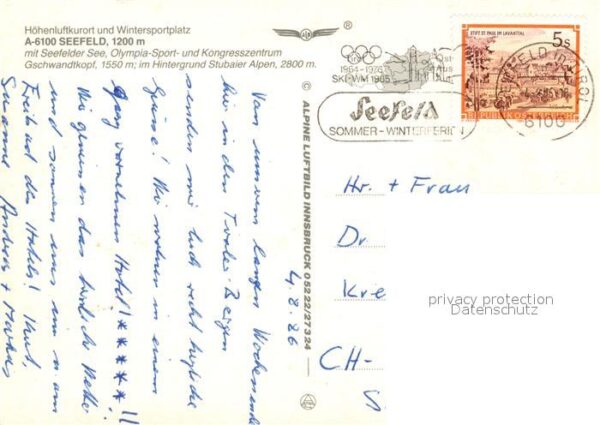 Höhenluftkurort und Wintersportplatz
A-6100 SEEFELD, 1200 m
mit Seefelder See, Olympia-Sport- und Kongresszentrum
Gschwandtkopf, 1550 m; im Hintergrund Stubaier Alpen, 2800 m.
4.8.86
Von unserem langen Wochenende
hier in den Tiroler Bergen
senden wir Euch recht herzliche
Grüsse! Wir wohnen in einem
ganz vornehmen Hotel! *****!!
Wir geniessen das herrliche Wetter
und sonnen uns nun am
Freibad des Hotels!
Susanne Andreas + Markus
© ALPINE LUFTBILD INNSBRUCK 05222/27324
1964-1976
SKI-WM 1985
Seefeld
SOMMER - WINTERFERIEN
STIFT ST. PAUL IM LAVANTTAL
5s
REPUBLIK ÖSTERREICH
SEEFELD IN TIROL
6100
Hr. + Frau
Dr
Kre
CH-
privacy protection
Datenschutz